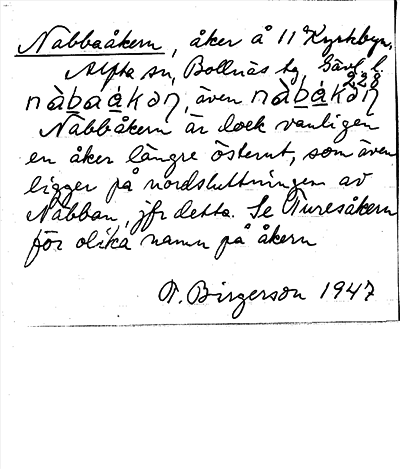 Nabbaåkern, åker å 11 Kyrkbyn,
Alfta sn, Bollnäs tg, Gävl. l.
228
nàbaákəη, även nàbákəη
Nabbåkern är dock vanligen
en åker längre österut, som även
ligger på nordsluttningen av
Nabban, jfr detta. Se Turesåkern
för olika namn på åkern
T. Birgerson 1947